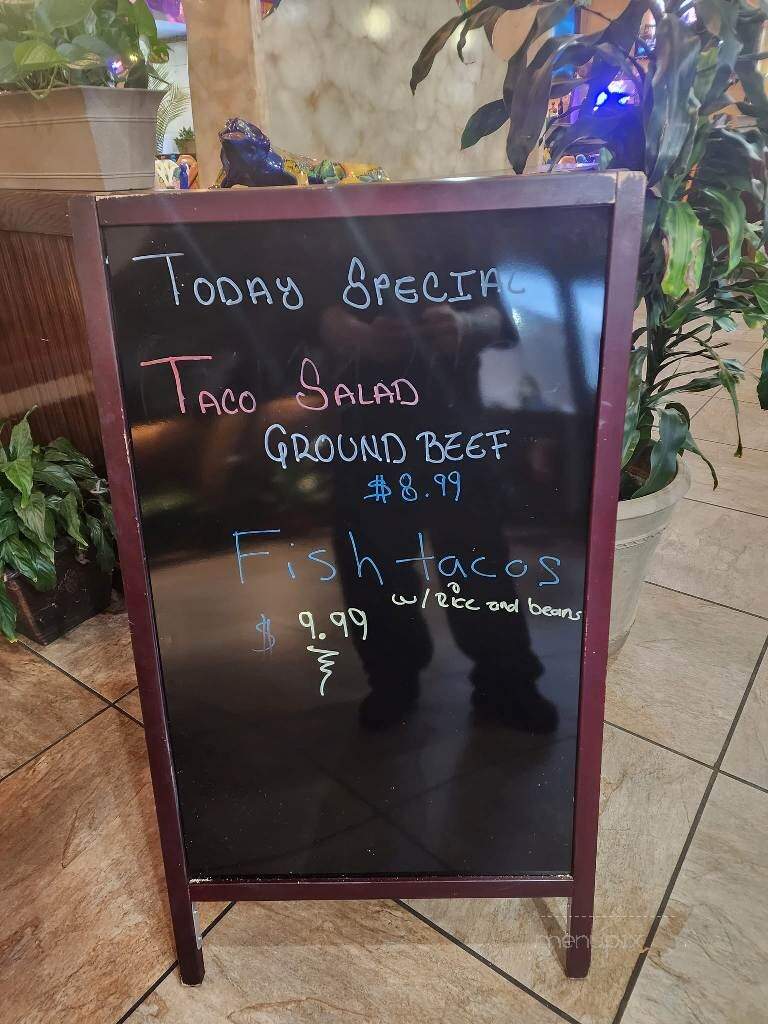 TODAY SPECIAL
TACO SALAD
GROUND BEEF
$8.99
Fish tacos
w/ Rice and beans
$ 9.99
menupix